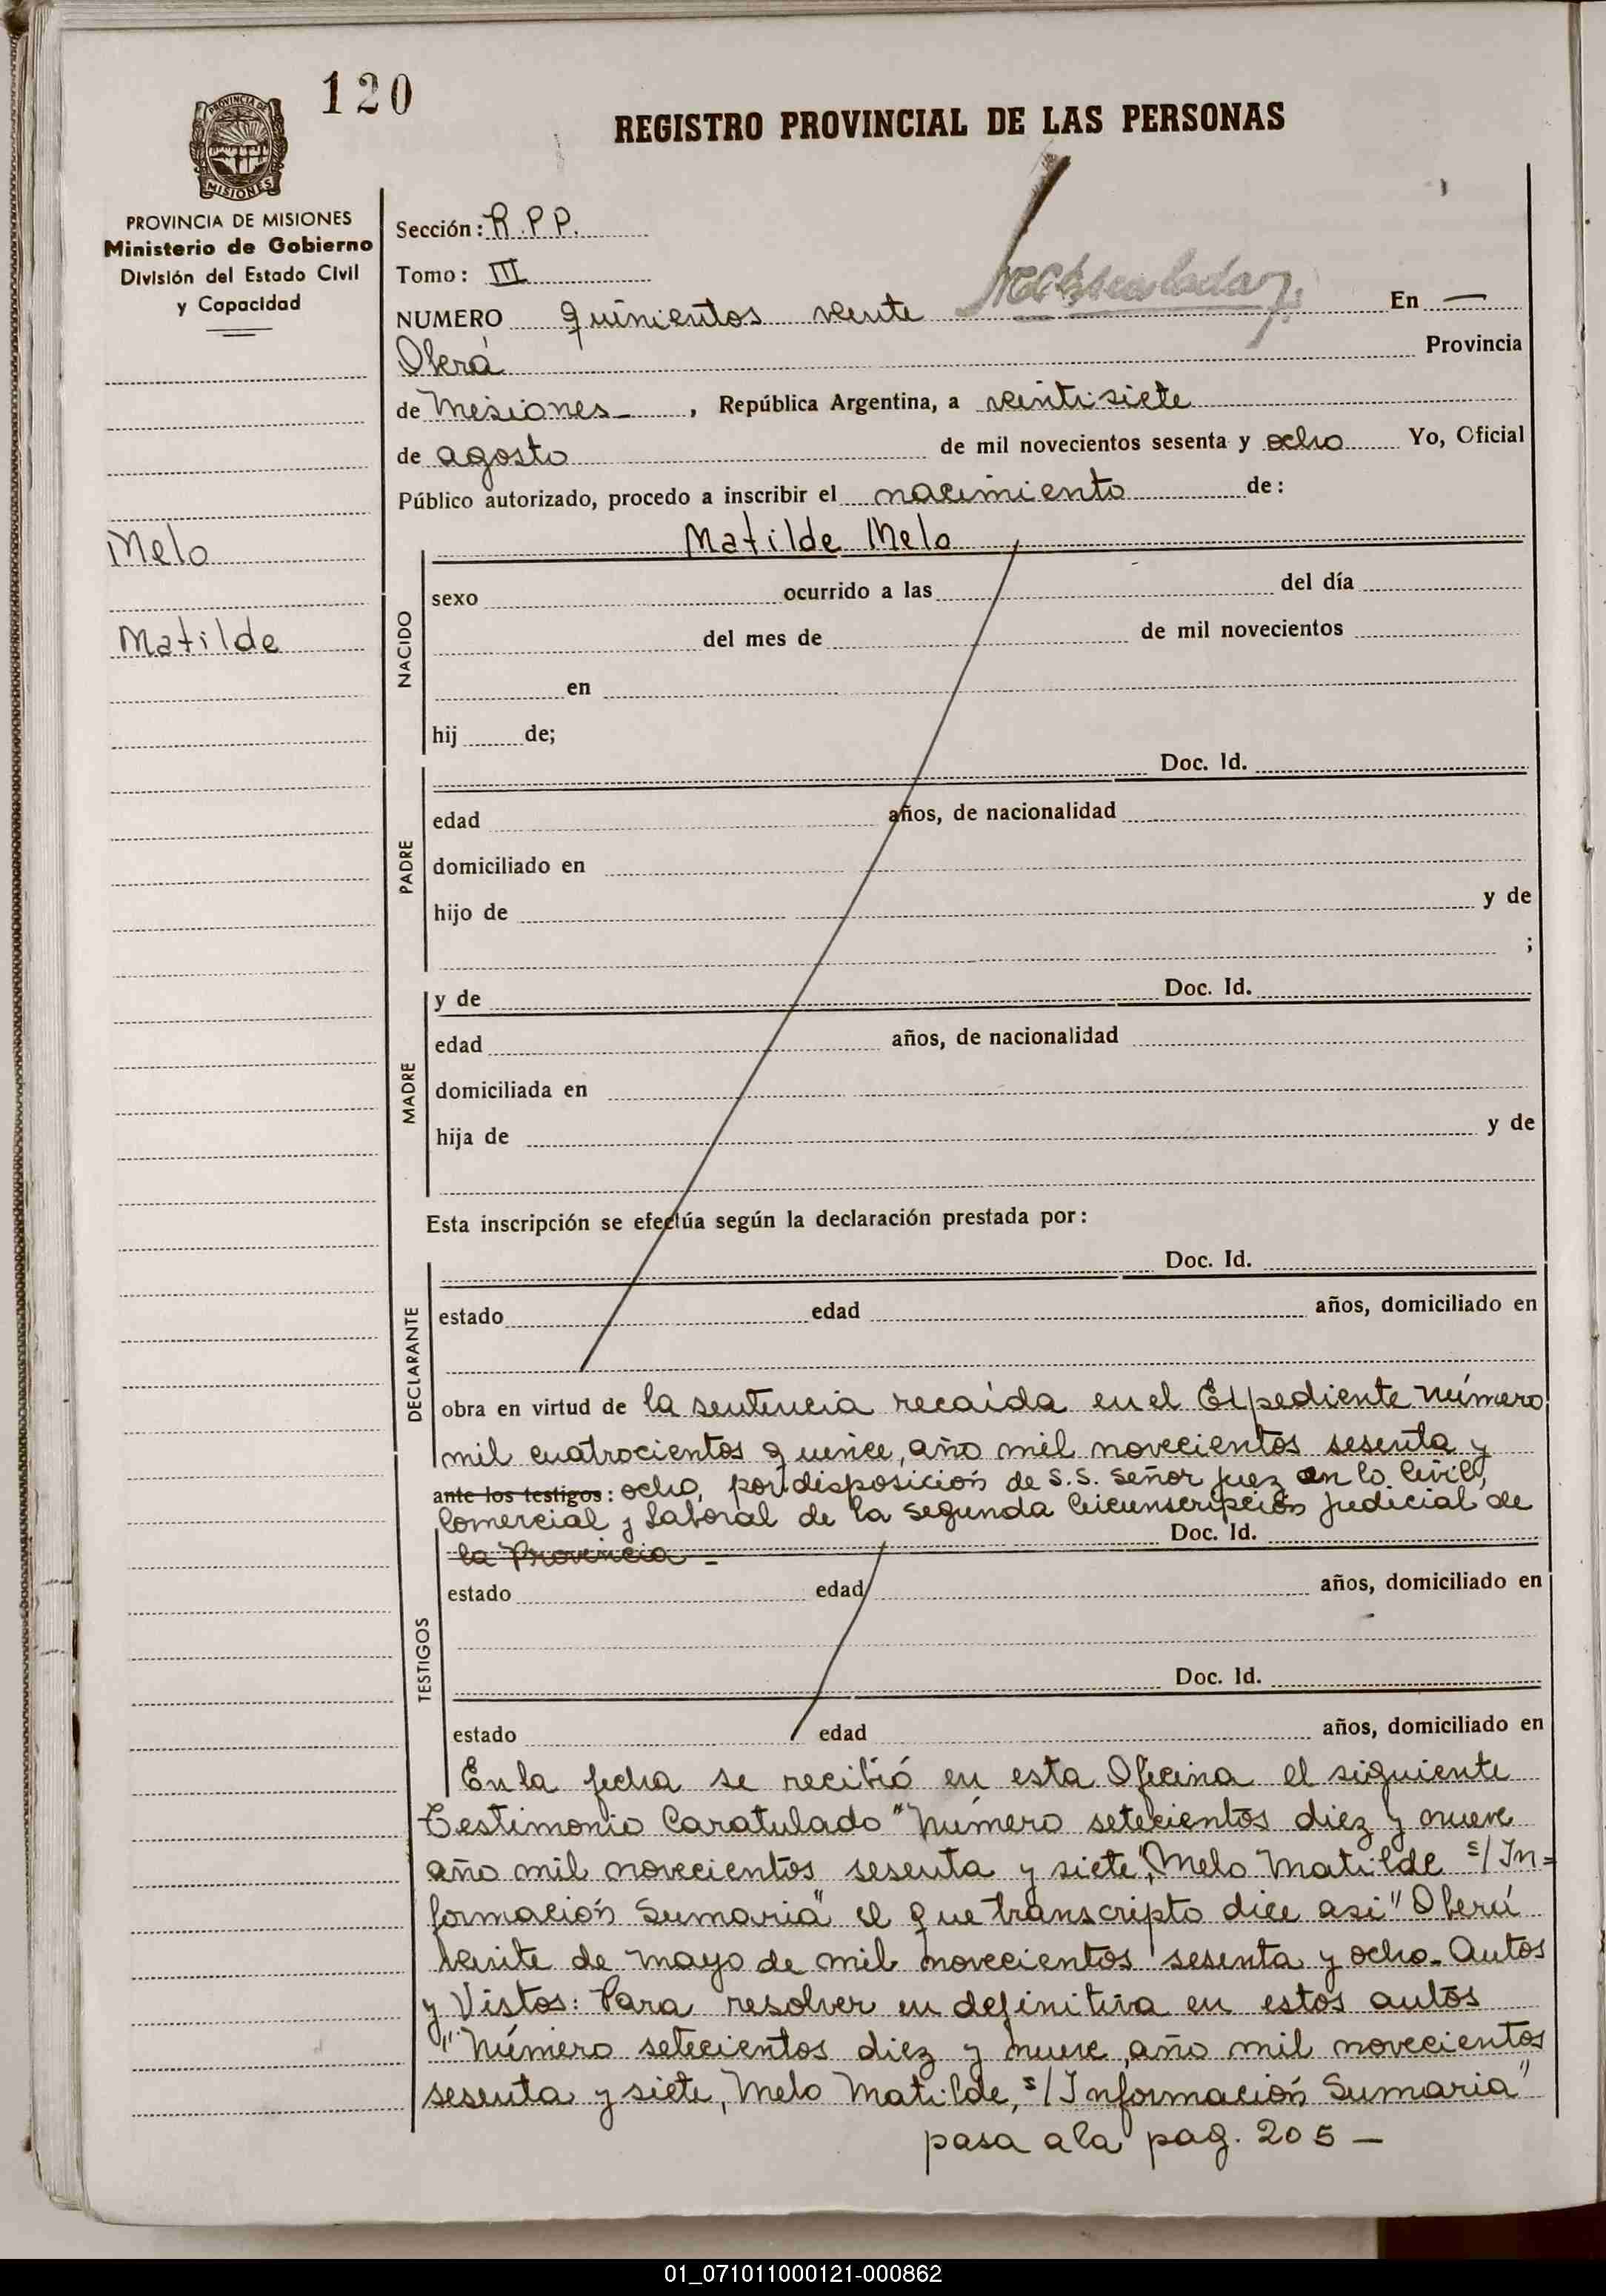 120
REGISTRO PROVINCIAL DE LAS PERSONAS
PROVINCIA DE MISIONES
PROVINCIA DE MISIONES
Ministerio de Gobierno
División del Estado Civil
y Capacidad
Melo
Matilde
Sección: R.P.P.
Tomo: III
NUMERO quinientos veinte En —
Oberá Provincia
de Misiones, República Argentina, a veintisiete
de agosto de mil novecientos sesenta y ocho Yo, Oficial
Público autorizado, procedo a inscribir el nacimiento de:
Matilde Melo
NACIDO
sexo ocurrido a las del día
del mes de de mil novecientos
en
hij de;
PADRE
Doc. Id.
edad años, de nacionalidad
domiciliado en
hijo de y de
;
MADRE
y de Doc. Id.
edad años, de nacionalidad
domiciliada en
hija de y de
Esta inscripción se efectúa según la declaración prestada por:
DECLARANTE
Doc. Id.
estado edad años, domiciliado en
obra en virtud de la sentencia recaída en el Expediente número
mil cuatrocientos quince, año mil novecientos sesenta y
ante los testigos: ocho, por disposición de S.S. señor juez en lo Civil,
Comercial y Laboral de la segunda Circunscripción Judicial de
Doc. Id.
la Provincia -
TESTIGOS
estado edad años, domiciliado en
Doc. Id.
estado edad años, domiciliado en
En la fecha se recibió en esta Oficina el siguiente
Testimonio Caratulado "Número setecientos diez y nueve
año mil novecientos sesenta y siete, "Melo Matilde s/ In=
formación Sumaria" el que transcripto dice asi "Oberá
veinte de mayo de mil novecientos sesenta y ocho. Autos
y Vistos: Para resolver en definitiva en estos autos
"Número setecientos diez y nueve, año mil novecientos
sesenta y siete, Melo Matilde, s/ Información Sumaria"
pasa a la pag. 205 —
01_071011000121-000862